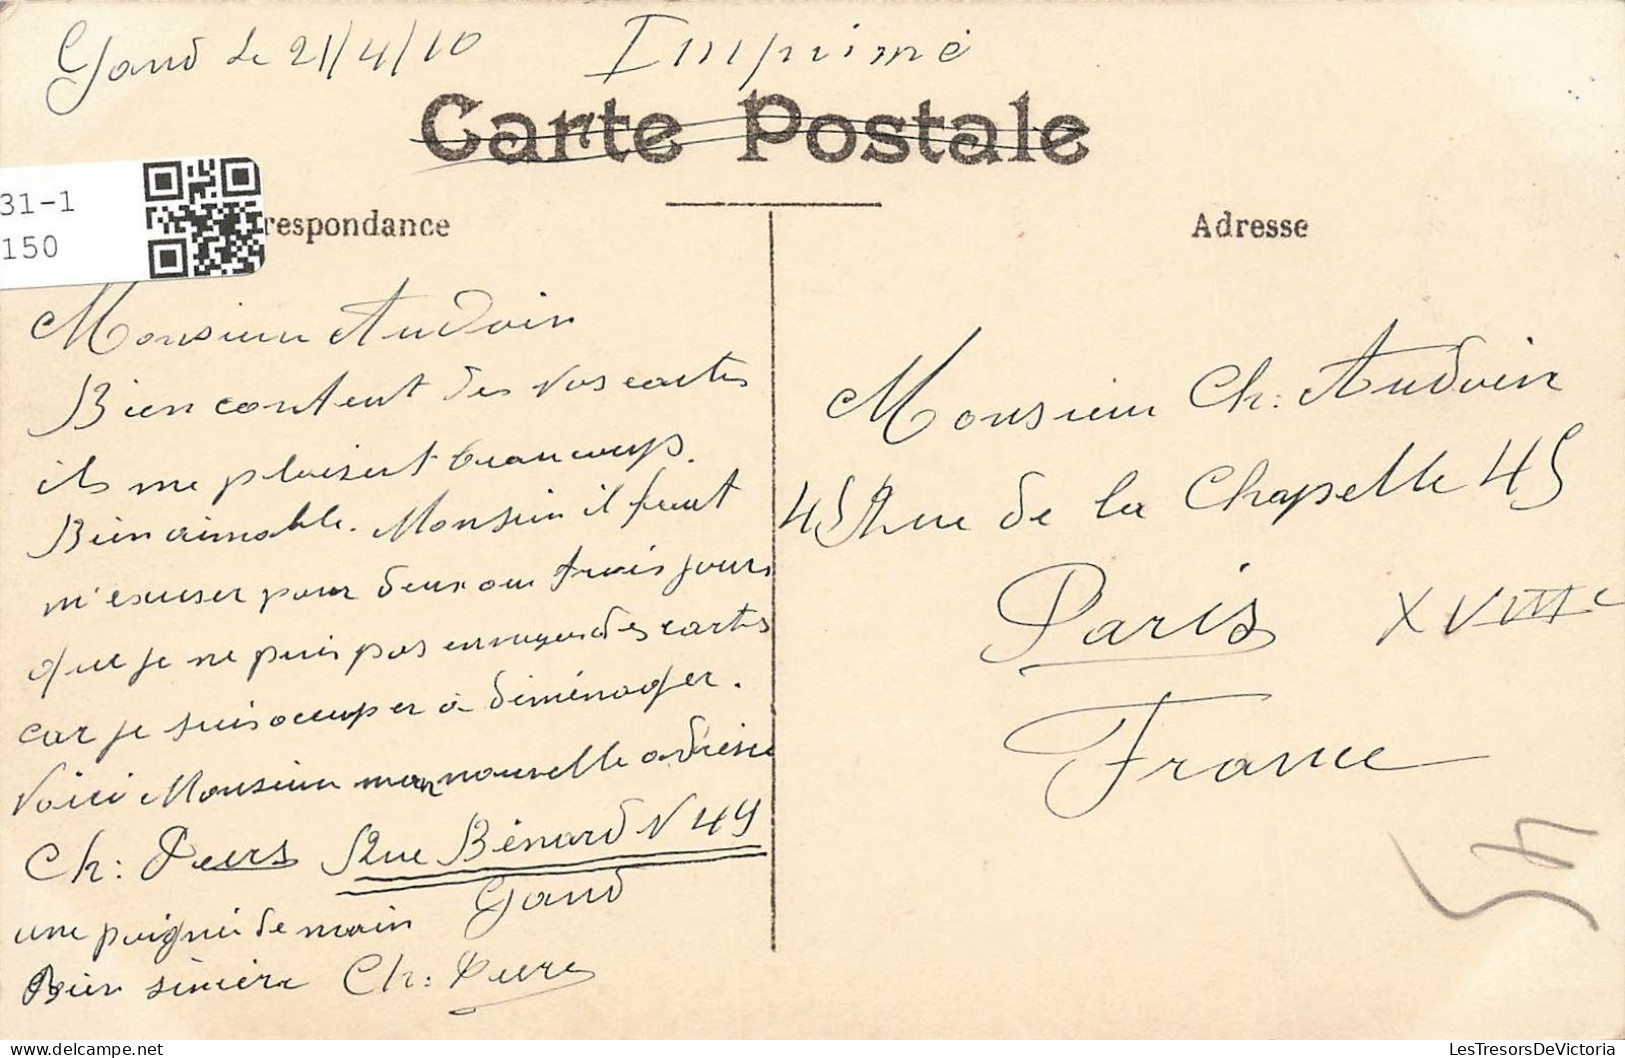 Gand le 21/4/10 Imprimé
Carte Postale
31-1
150
respondance
Adresse
Monsieur Audoin
Bien content des vos cartes
ils me plaisent beaucoups.
Bien aimable. Monsieur il faut
m'excuser pour deux ou trois jours
que je ne puis pas envoyer des cartes
car je suis occuper à déménager.
Voici Monsieur mon nouvelle adresse
Ch: Peers Rue Bénard N 49
Gand
une poignée de main
Bien sincère Ch: Peers
Monsieur Ch: Audoin
45 Rue de la Chapelle 45
Paris XVIIIe
France
LesTresorsDeVictoria